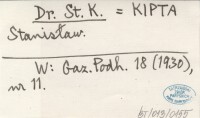 Dr. St. K. = KIPTA
Stanisław.
W: Gaz. Podh. 18 (1930),
nr 11.